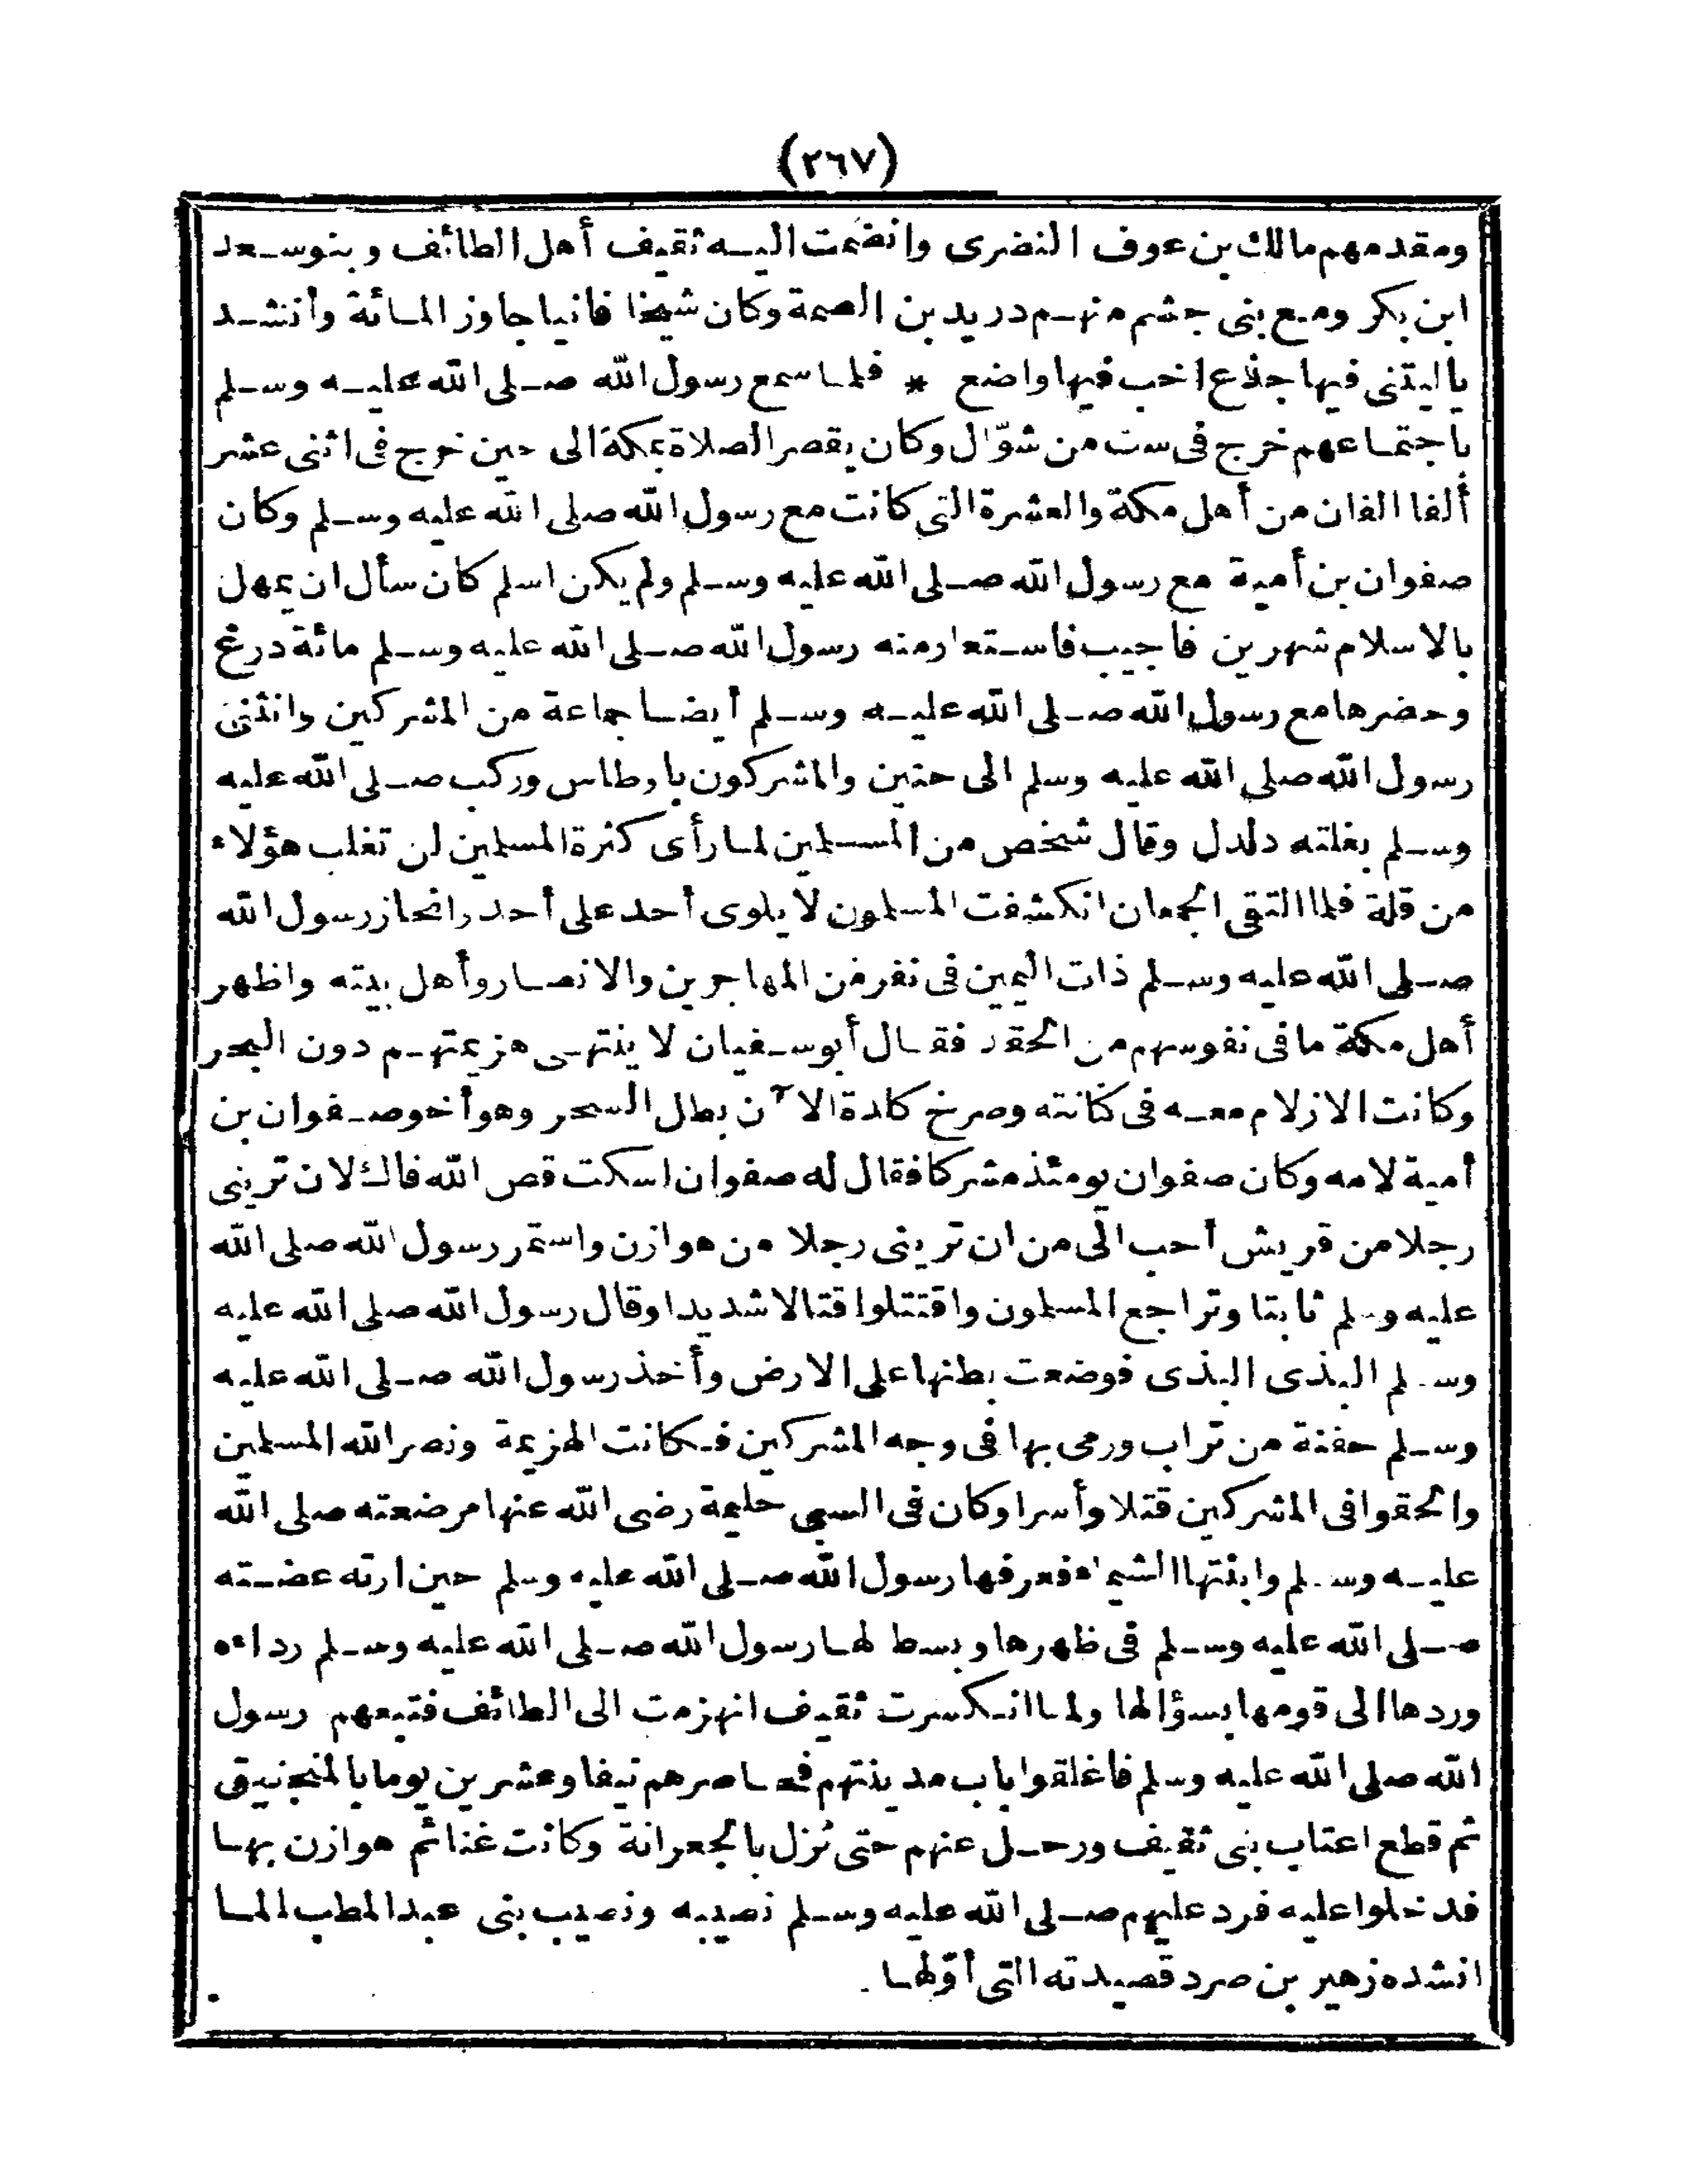 (٢٦٧)
ومقدمهم مالك بن عوف النضرى وانضمت اليه ثقيف أهل الطائف وبنوسعد
ابن بكر ومع بنى جشم منهم دريد بن الصمة وكان شيخا فانيا جاوز المائة وأنشد
ياليتنى فيها جذع اخب فيها واضع * فلما سمع رسول الله صلى الله عليه وسلم
باجتماعهم خرج فى ست من شوّال وكان يقصر الصلاة بمكة الى حين خرج فى اثنى عشر
ألفا الفان من أهل مكة والعشرة التى كانت مع رسول الله صلى الله عليه وسلم وكان
صفوان بن أمية مع رسول الله صلى الله عليه وسلم ولم يكن اسلم كان سأل ان يمهل
بالاسلام شهرين فاجيب فاستعار منه رسول الله صلى الله عليه وسلم مائة درع
وحضرها مع رسول الله صلى الله عليه وسلم أيضا جماعة من المشركين وانثنى
رسول الله صلى الله عليه وسلم الى حنين والمشركون باوطاس وركب صلى الله عليه
وسلم بغلته دلدل وقال شخص من المسلمين لما رأى كثرة المسلمين لن تغلب هؤلاء
من قلة فلما التقى الجمعان انكشفت المسلمون لا يلوى أحد على أحد وانحاز رسول الله
صلى الله عليه وسلم ذات اليمين فى نفر من المهاجرين والانصار وأهل بيته واظهر
أهل مكة ما فى نفوسهم من الحقد فقال أبوسفيان لا ينتهى هزيمتهم دون البحر
وكانت الازلام معه فى كنانته وصرخ كلدة الآن بطل السحر وهو أخو صفوان بن
أمية لامه وكان صفوان يومئذ مشركا فقال له صفوان اسكت قص الله فاك لان تربنى
رجلا من قريش أحب الىّ من ان تربنى رجلا من هوازن واستمر رسول الله صلى الله
عليه وسلم ثابتا وتراجع المسلمون واقتتلوا قتالا شديدا وقال رسول الله صلى الله عليه
وسلم البذى البذى فوضعت بطنها على الارض وأخذ رسول الله صلى الله عليه
وسلم حفنة من تراب ورمى بها فى وجه المشركين فكانت الهزيمة ونصر الله المسلمين
والحقوا فى المشركين قتلا وأسرا وكان فى السبى حليمة رضى الله عنها مرضعته صلى الله
عليه وسلم وابنتها الشيماء فعرفها رسول الله صلى الله عليه وسلم حين ارته عضته
صلى الله عليه وسلم فى ظهرها وبسط لها رسول الله صلى الله عليه وسلم رداءه
وردها الى قومها بسؤالها ولما انكسرت ثقيف انهزمت الى الطائف فتبعهم رسول
الله صلى الله عليه وسلم فاغلقوا باب مدينتهم فحاصرهم نيفا وعشرين يوما بالمنجنيق
ثم قطع اعتاب بنى ثقيف ورحل عنهم حتى نزل بالجعرانة وكانت غنائم هوازن بها
فدخلوا عليه فرد عليهم صلى الله عليه وسلم نصيبه ونصيب بنى عبد المطلب لما
انشده زهير بن صرد قصيدته التى أوّلها